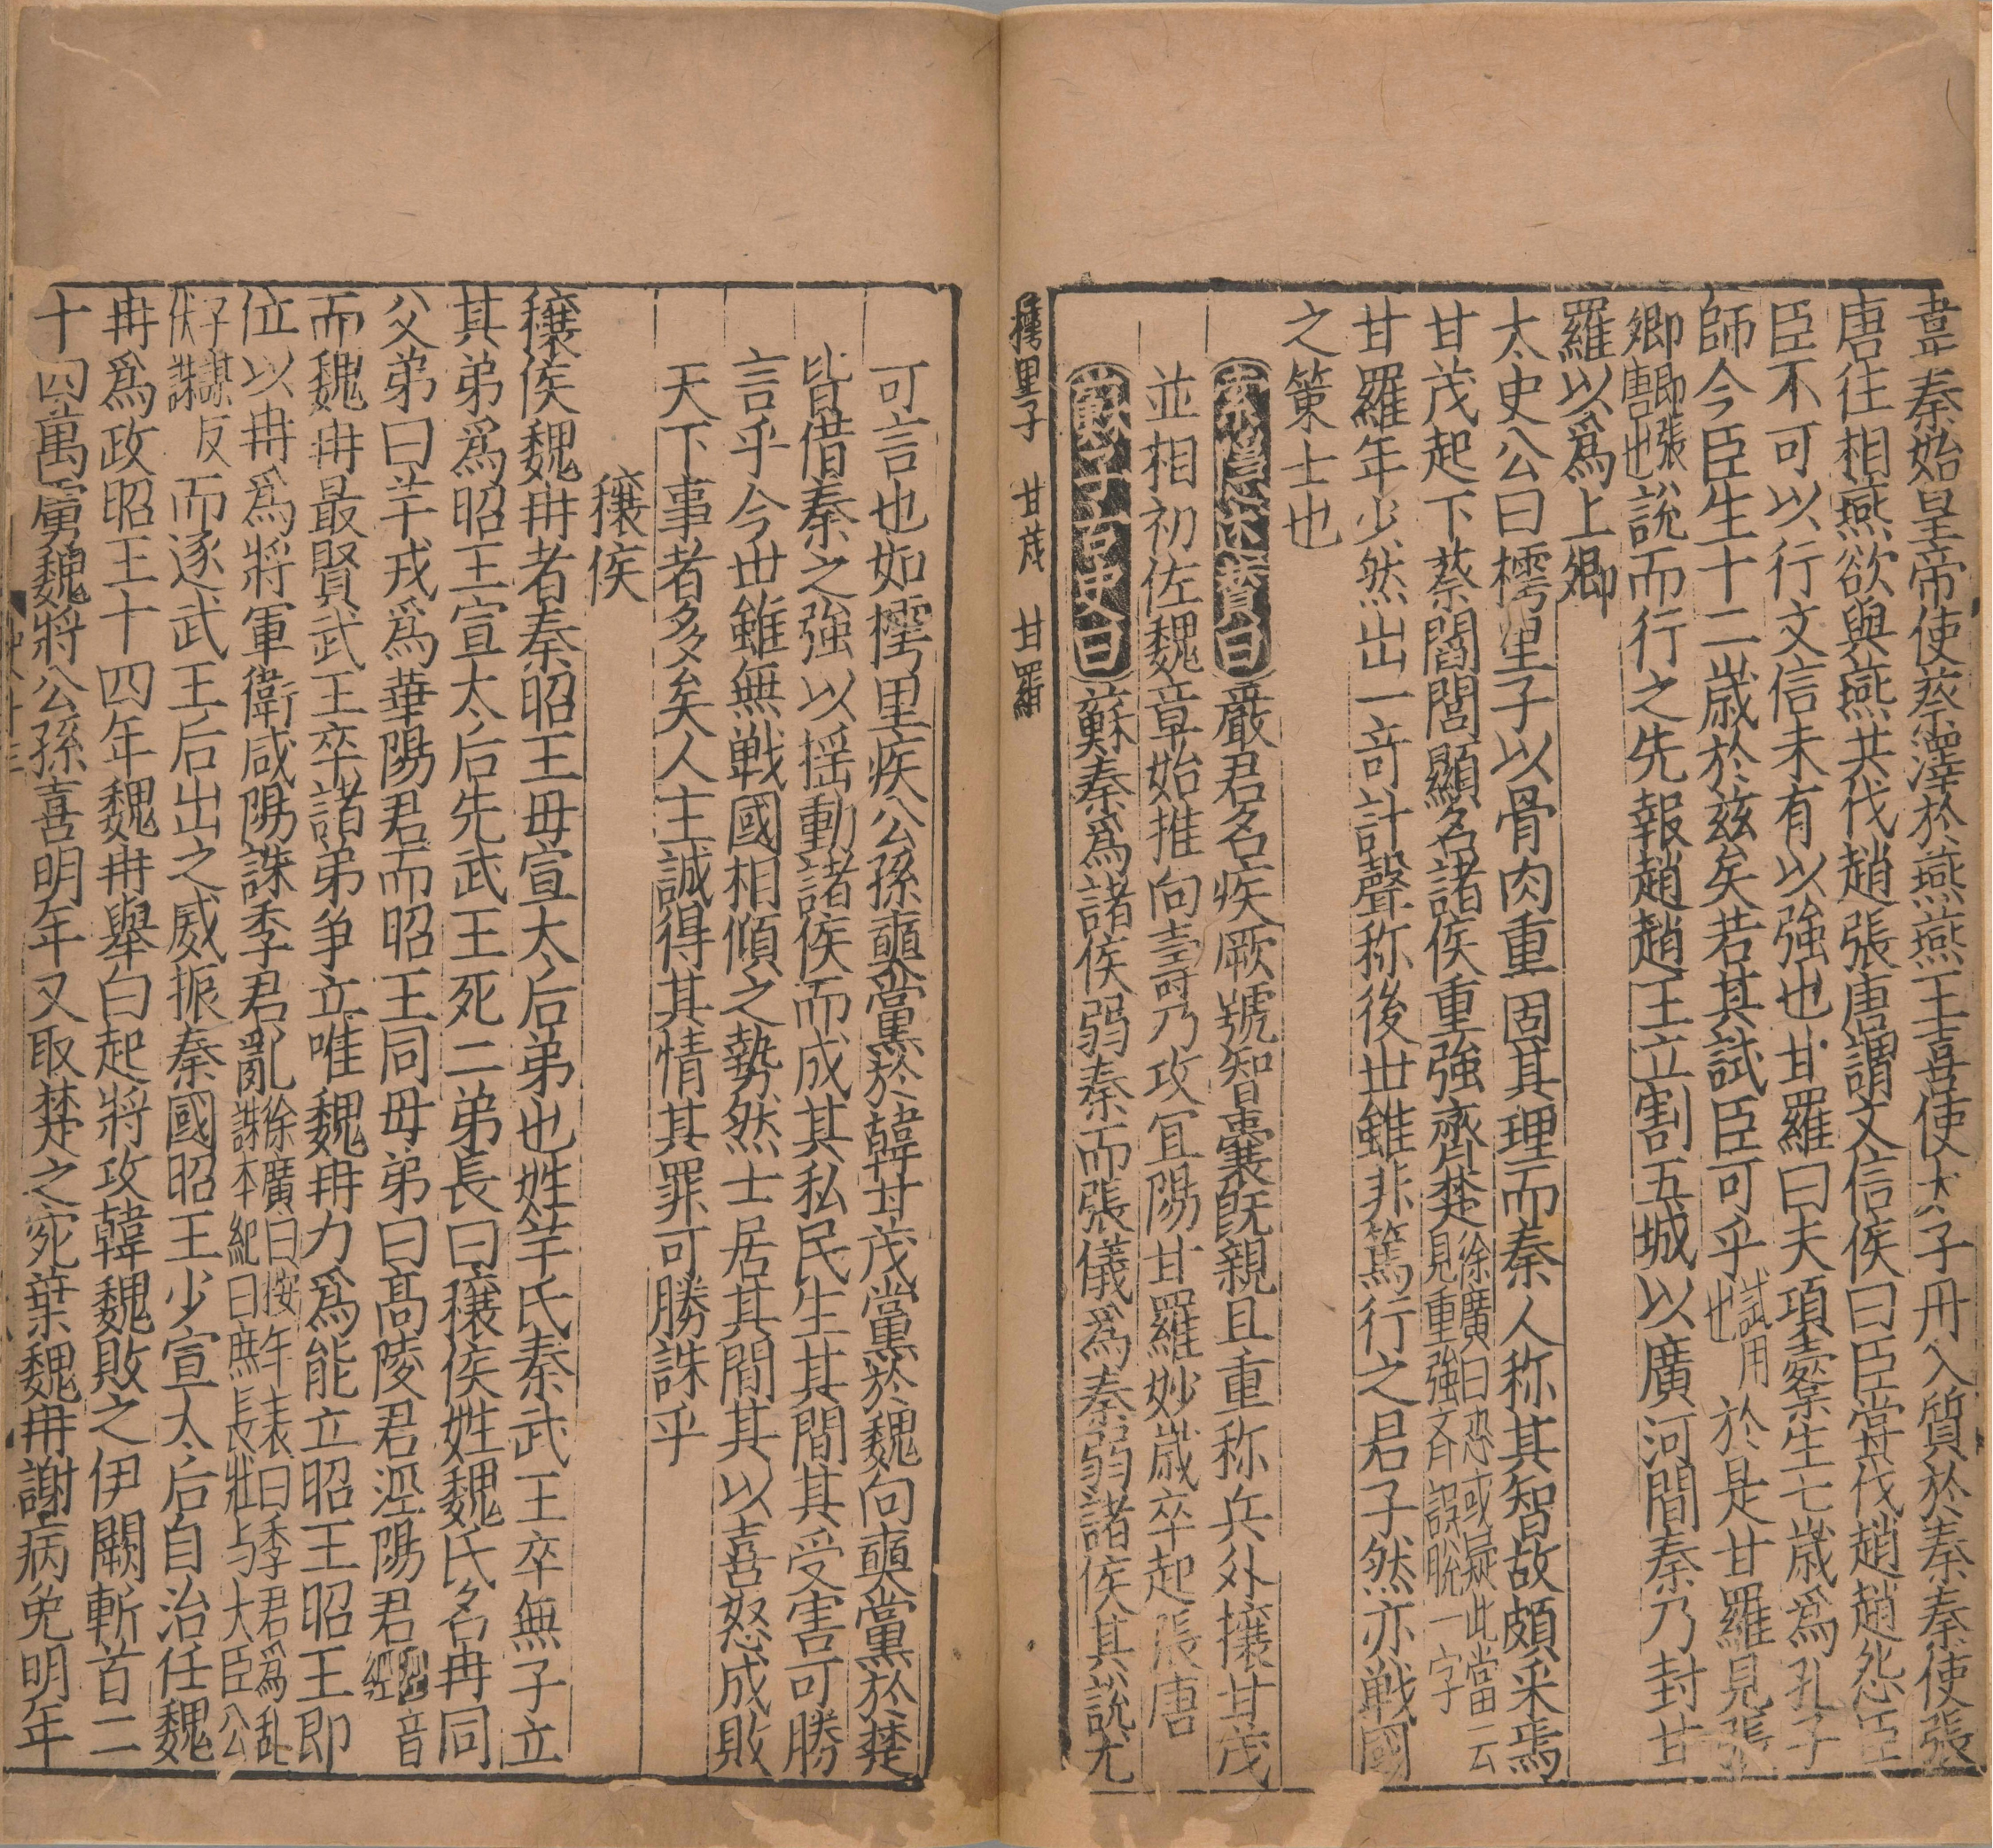 韋秦始皇帝使蔡澤於燕燕王喜使太子丹入質於秦秦使張
唐往相燕欲與燕共伐趙張唐謂文信侯曰臣甞伐趙趙怨臣
臣不可以行文信未有以強也甘羅曰夫項橐生七歳爲孔子
師今臣生十二歳於兹矣若其試臣可乎試用也於是甘羅見張
卿卽張唐也說而行之先報趙趙王立割五城以廣河間秦乃封甘
羅以爲上卿
太史公曰樗里子以骨肉重固其理而秦人称其智故頗采焉
甘茂起下蔡閻閭顯名諸侯重強齊楚徐廣曰恐或疑此當云見重強齐誤脫一字
甘羅年少然出一竒計聲称後世雖非篤行之君子然亦戦國
之策士也
索隱述賛曰嚴君名疾厥號智囊旣親且重称兵外攘甘茂
並相初佐魏章始推向壽乃攻冝陽甘羅妙歳卒起張唐
蘇秦爲諸侯弱秦而張儀爲秦弱諸侯其說尤
樗里子 甘茂 甘羅
可言也如樗里疾公孫奭黨於韓甘茂黨於魏向奭黨於楚
皆借秦之強以揺動諸侯而成其私民生其間其受害可勝
言乎今世雖無戦國相傾之勢然士居其間其以喜怒成敗
天下事者多矣人主誠得其情其罪可勝誅乎
穰侯
穰侯魏冉者秦昭王母宣太后弟也姓羋氏秦武王卒無子立
其弟爲昭王宣太后先武王死二弟長曰穰侯姓魏氏名冉同
父弟曰羋戎爲華陽君而昭王同母弟曰髙陵君涇陽君
而魏冉最賢武王卒諸弟争立唯魏冉力爲能立昭王昭王即
位以冉爲將軍衛咸陽誅季君亂徐廣曰按年表曰季君爲乱誅本紀曰庶長壯与大臣公
子謀反伏誅而逐武王后出之威振秦國昭王少宣太后自治任魏
冉爲政昭王十四年魏冉舉白起將攻韓魏敗之伊闕斬首二
十四萬虜魏將公孫喜明年又取楚之宛葉魏冉謝病免明年